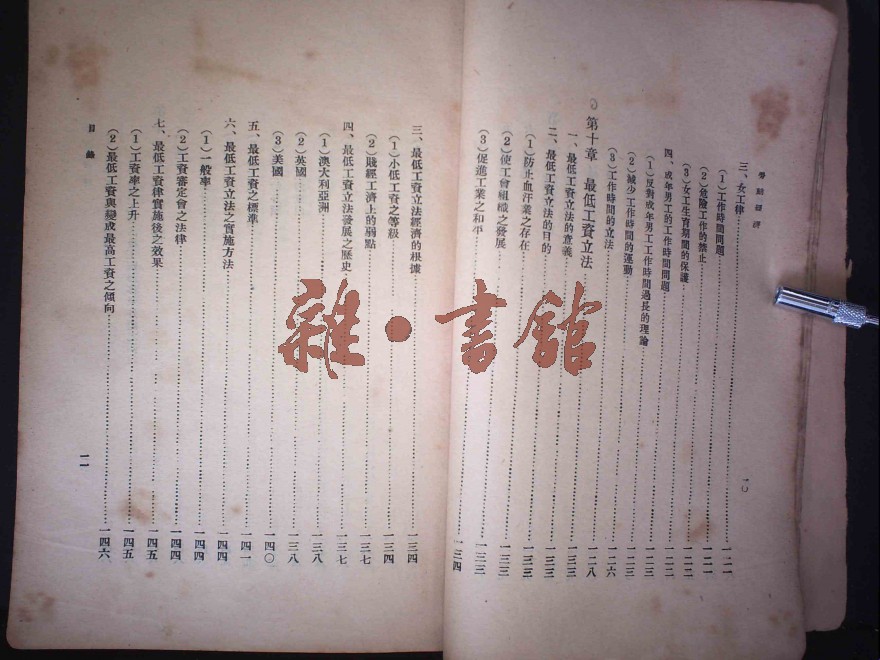 勞動經濟
一〇
三、女工律……一二一
(1)工作時間問題……一二一
(2)危險工作的禁止……一二一
(3)女工生育期間的保護……一二二
四、成年男工的工作時間問題……一二二
(1)反對成年男工工作時間過長的理論……一二三
(2)減少工作時間的運動……一二三
(3)工作時間的立法……一二六
第十章 最低工資立法……一二八
一、最低工資立法的意義……一三三
二、最低工資立法的目的……一三三
(1)防止血汗業之存在……一三三
(2)使工會組織之發展……一三三
(3)促進工業之和平……一三三
一三四
三、最低工資立法經濟的根據……一三四
(1)小低工資之等級……一三四
(2)賤經工濟上的弱點……一三七
四、最低工資立法發展之歷史……一三七
(1)澳大利亞洲……一三八
(2)英國……一三八
(3)美國……一四〇
五、最低工資之標準……一四一
六、最低工資立法之實施方法……一四四
(1)一般率……一四四
(2)工資審定會之法律……一四四
七、最低工資律實施後之效果……一四五
(1)工資率之上升……一四五
(2)最低工資與變成最高工資之傾向……一四六
目錄
一一
雜·書館